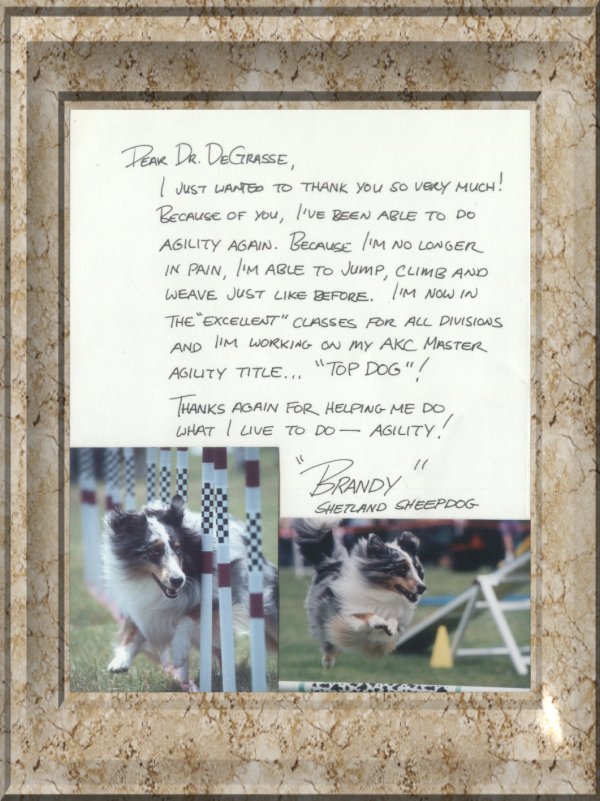 Dear Dr. DeGrasse,
I just wanted to thank you so very much!
Because of you, I've been able to do
agility again. Because I'm no longer
in pain, I'm able to jump, climb and
weave just like before. I'm now in
the "Excellent" classes for all divisions
and I'm working on my AKC Master
Agility title... "Top Dog"!
Thanks again for helping me do
what I live to do — agility!
"Brandy"
Shetland Sheepdog